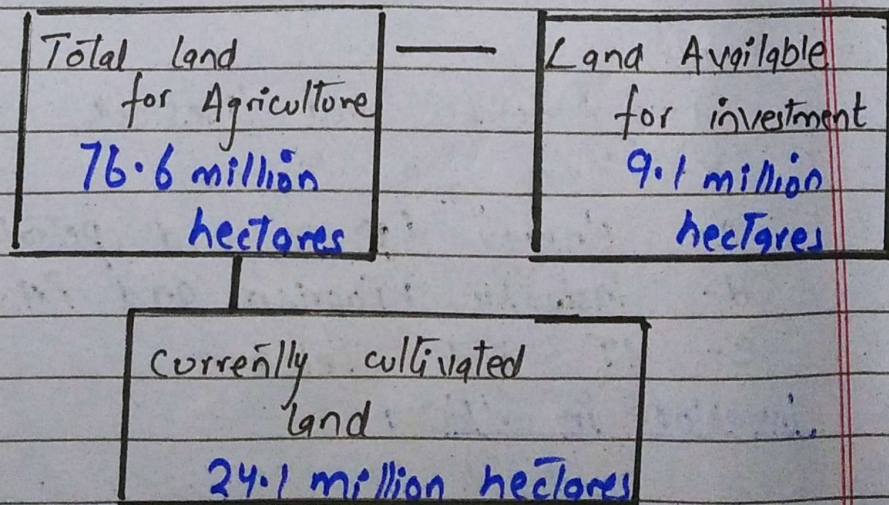 Total land
for Agriculture
76.6 million
hectares
Land Available
for investment
9.1 million
hectares
Currently cultivated
land
24.1 million hectares